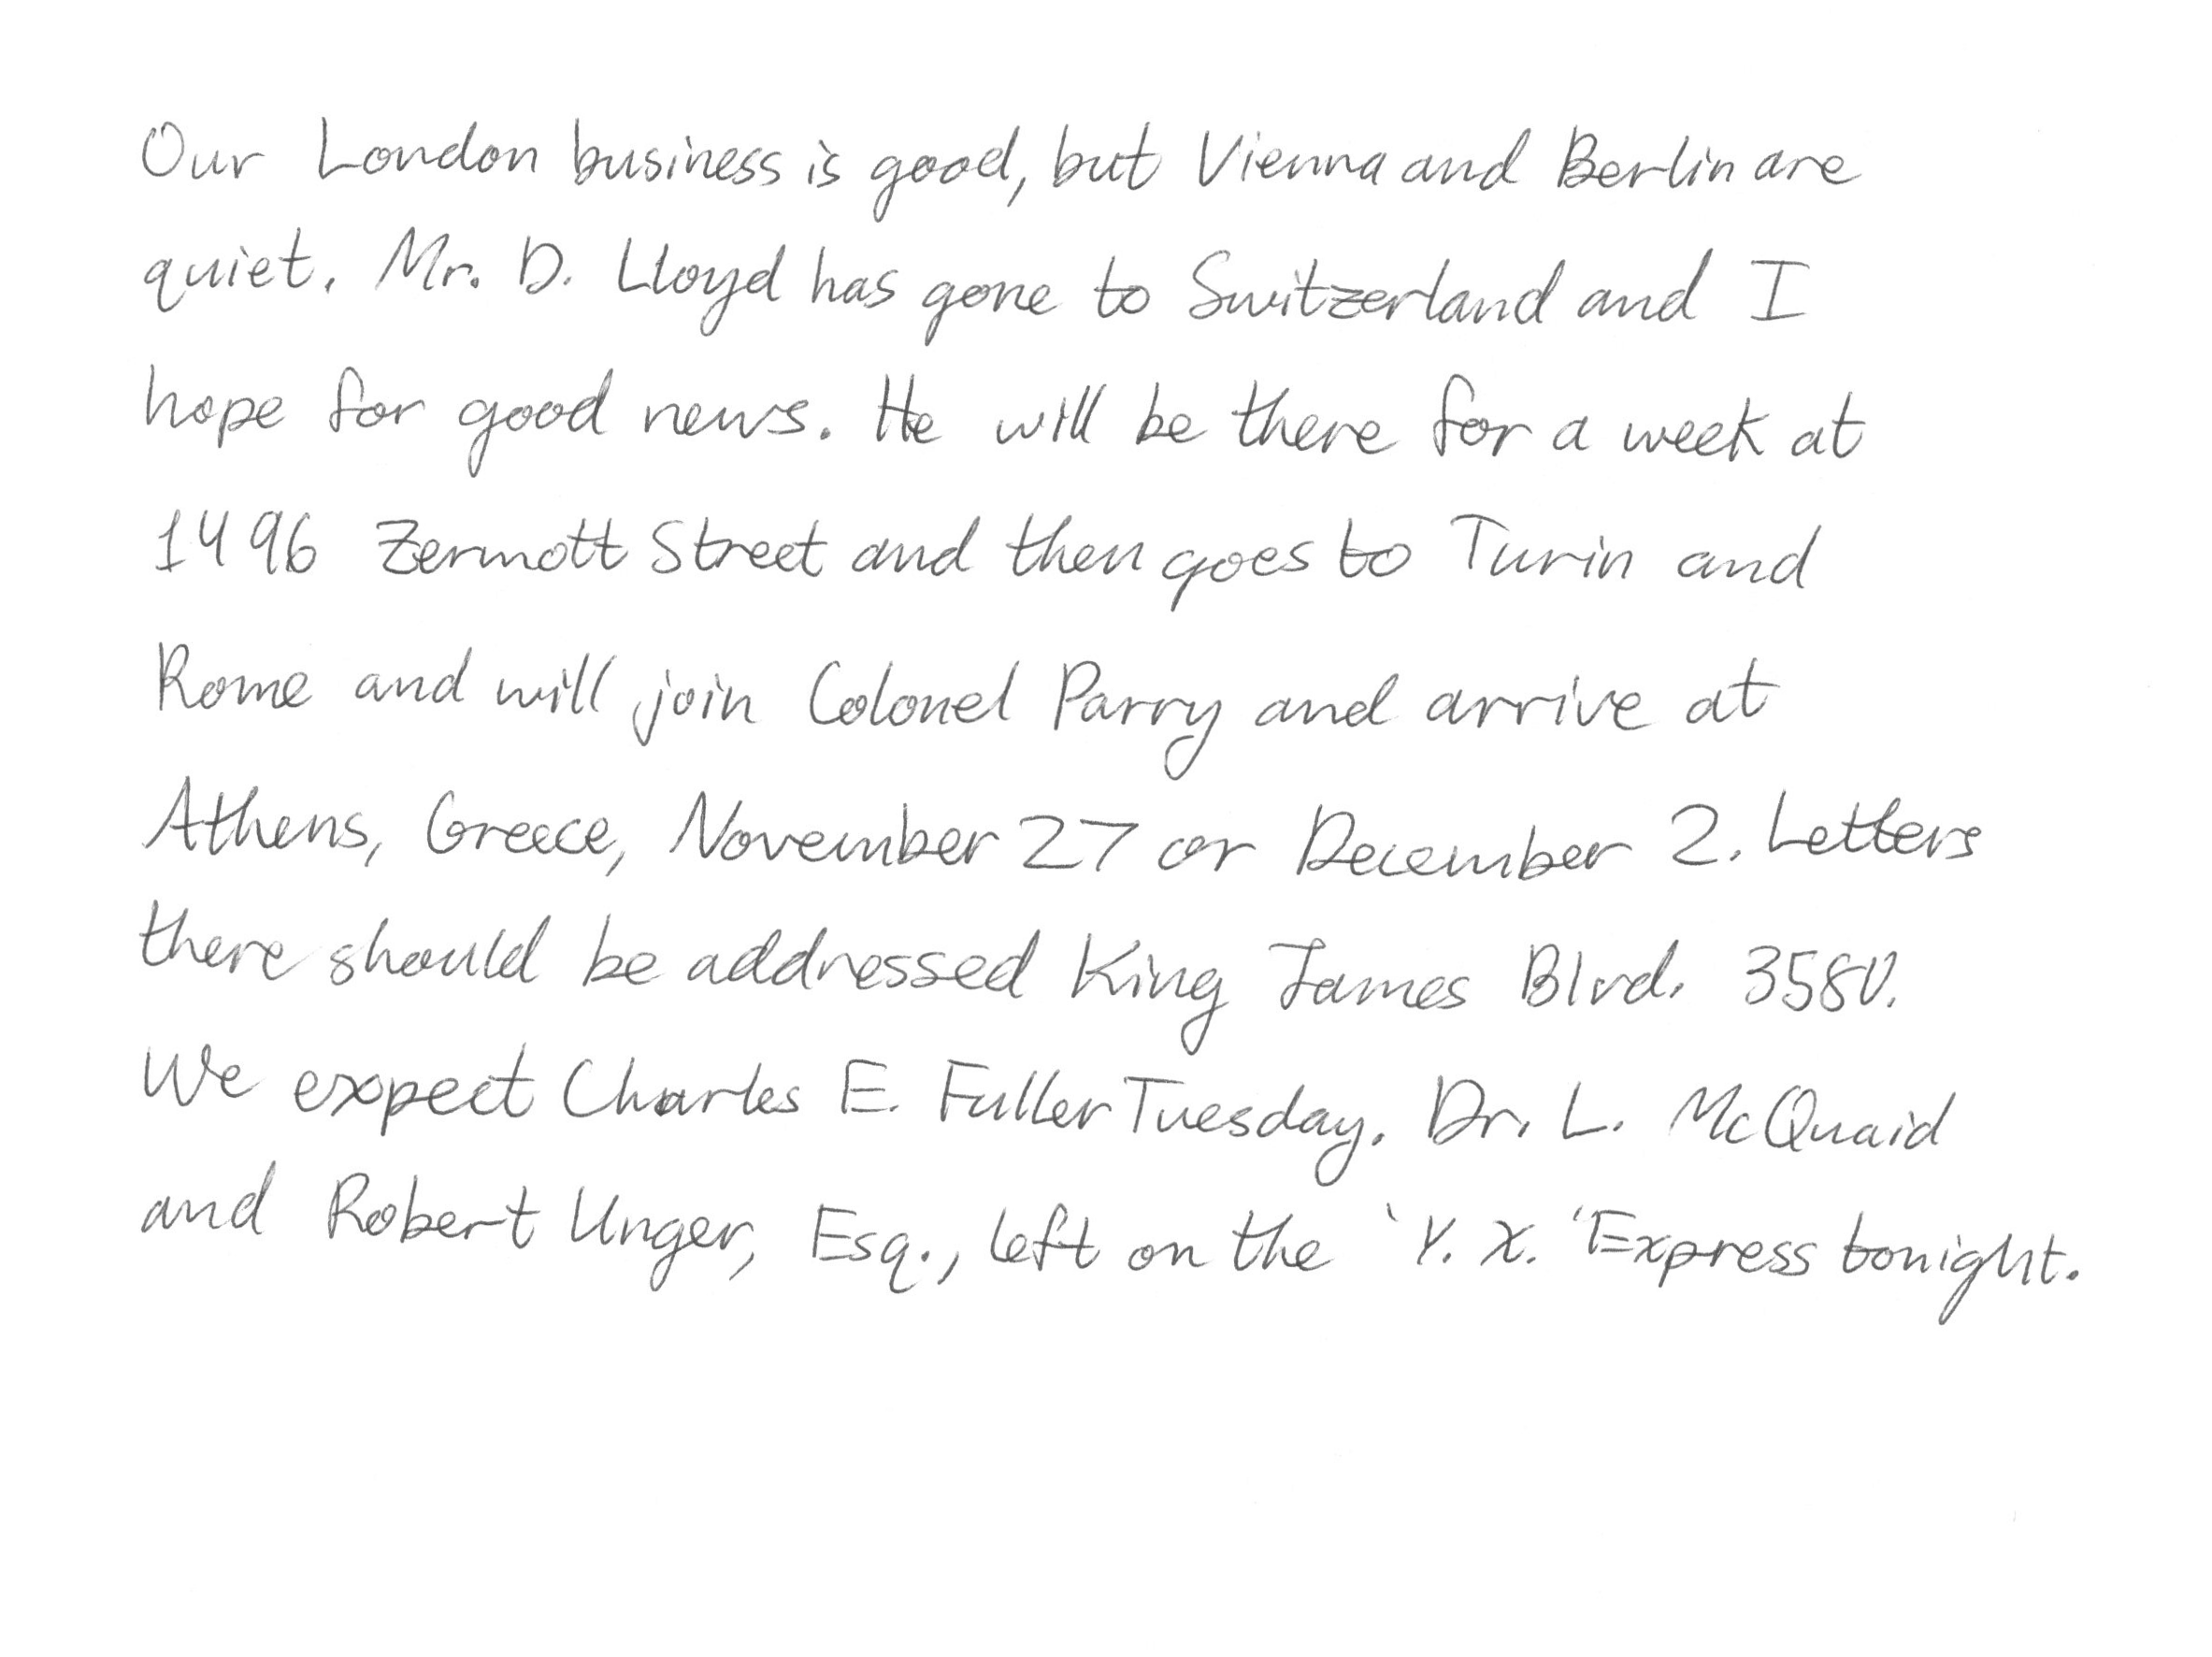 Our London business is good, but Vienna and Berlin are
quiet. Mr. D. Lloyd has gone to Switzerland and I
hope for good news. He will be there for a week at
1496 Zermott Street and then goes to Turin and
Rome and will join Colonel Parry and arrive at
Athens, Greece, November 27 or December 2. Letters
there should be addressed King James Blvd. 3580.
We expect Charles E. Fuller Tuesday. Dr. L. McQuaid
and Robert Unger, Esq., left on the 'Y. X.' Express tonight.